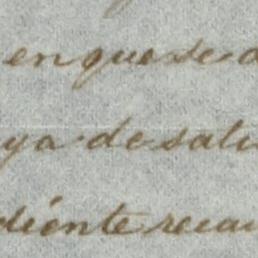 en que se
ya de salu
diente recau